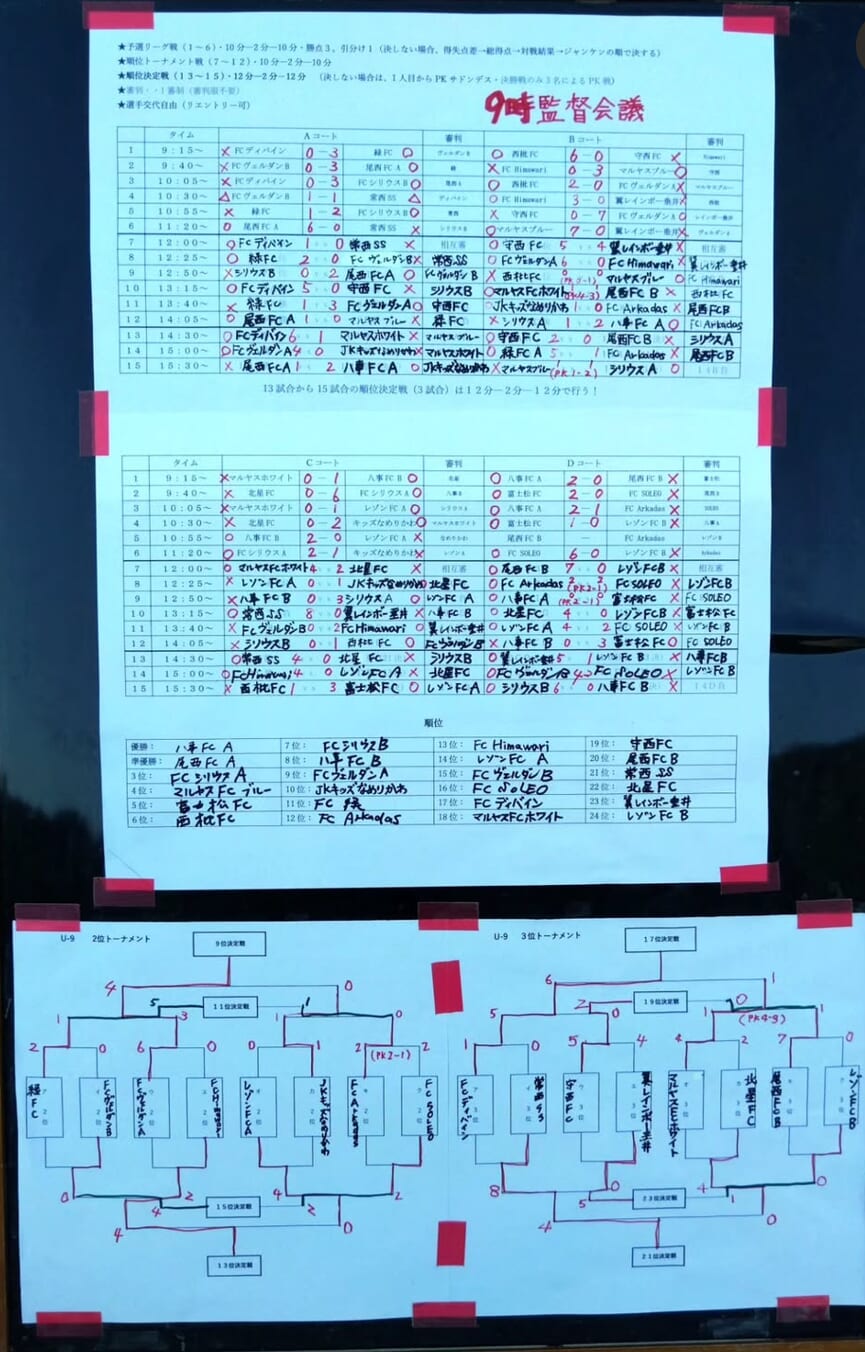 ★予選リーグ戦（1～6）・10分―2分―10分・勝点3、引分け1（決しない場合、得失点差→総得点→対戦結果→ジャンケンの順で決する）
★順位トーナメント戦（7～12）・10分―2分―10分
★順位決定戦（13～15）・12分―2分―12分　（決しない場合は、1人目からPKサドンデス・決勝戦のみ3名によるPK戦）
★審判・・1審制（審判服不要）
★選手交代自由（リエントリー可）
9時監督会議
タイム Aコート 審判 Bコート 審判
1 9：15～ ×FCディバイン 0－3 緑FC○ ヴェルダンB ○西枇FC 6－0 守西FC× Himawari
2 9：40～ ×FCヴェルダンB 0－3 尾西FC A○ 緑 ×FC Himawari 0－3 マルヤスブルー○ 守西
3 10：05～ ×FCディバイン 0－3 FCシリウスB○ 尾西A ○西枇FC 2－0 FCヴェルダンA× マルヤスブルー
4 10：30～ △FCヴェルダンB 1－1 常西SS△ ディバイン ○FC Himawari 3－0 翼レインボー垂井× 西枇
5 10：55～ ×緑FC 1－2 FCシリウスB○ 常西 ×守西FC 0－7 FCヴェルダンA○ レインボー垂井
6 11：20～ ○尾西FC A 6－0 常西SS× シリウスB ○マルヤスブルー 7－0 翼レインボー垂井× ヴェルダンA
7 12：00～ ○FCディバイン 1 0 常西SS× 相互審 ○守西FC 5 4 翼レインボー垂井 相互審
8 12：25～ ○緑FC 2 0 FCヴェルダンB× 常西SS ○FCヴェルダンA 6 0 FC Himawari× 翼レインボー垂井
9 12：50～ ×シリウスB 0 2 尾西FC A○ FCヴェルダンB ×西枇FC 0 0 マルヤスブルー○ FC Himawari
10 13：15～ ○FCディバイン 5 0 守西FC× シリウスB ○マルヤスFCホワイト (PK4-3) 尾西FC B× 西枇FC
11 13：40～ ×緑FC 1 3 FCヴェルダンA○ 守西FC ○JKキッズなめりかわ 1 0 FC Arkadas× 尾西FC B
12 14：05～ ○尾西FC A 1 0 マルヤスブルー× 緑FC ×シリウスA 1 2 八事FC A○ FC Arkadas
13 14：30～ ○FCディバイン 6 1 マルヤスホワイト× マルヤスブルー ○守西FC 2 0 尾西FC B× シリウスA
14 15：00～ ○FCヴェルダンA 4 0 JKキッズなめりかわ× マルヤスホワイト ○緑FC A 5 1 FC Arkadas× 尾西FC B
15 15：30～ ×尾西FC A 1 2 八事FC A○ JKキッズなめりかわ ×マルヤスブルー 1 1 (PK1-2) シリウスA○ 14B目
13試合から15試合の順位決定戦（3試合）は12分―2分―12分で行う！
タイム Cコート 審判 Dコート 審判
1 9：15～ ×マルヤスホワイト 0－1 八事FC B○ 北星 ○八事FC A 2－0 尾西FC B× 富士松
2 9：40～ ×北星FC 0－6 FCシリウスA○ 八事B ○富士松FC 2－0 FC SOLEO× 尾西B
3 10：05～ ×マルヤスホワイト 0－1 レゾンFC A○ シリウスA ○八事FC A 2－1 FC Arkadas× SOLEO
4 10：30～ ×北星FC 0－2 キッズなめりかわ○ マルヤスホワイト ○富士松FC 1－0 レゾンFC B× 八事A
5 10：55～ ○八事FC B 2－0 レゾンFC A× なめりかわ 尾西FC B － FC Arkadas レゾンB
6 11：20～ ○FCシリウスA 2－1 キッズなめりかわ× レゾンA ○FC SOLEO 6－0 レゾンFC B× Arkadas
7 12：00～ ○マルヤスFCホワイト 4 2 北星FC× 相互審 ○尾西FC B 7 0 レゾンFC B× 相互審
8 12：25～ ×レゾンFC A 0 1 JKキッズなめりかわ○ 北星FC ○FC Arkadas 2 2 (PK2-1) FC SOLEO× レゾンFC B
9 12：50～ ×八事FC B 0 3 シリウスA○ レゾンFC A ○八事FC A 0 0 (PK2-1) 富士松FC× FC SOLEO
10 13：15～ ○常西SS 8 0 翼レインボー垂井× 八事FC B ○北星FC 4 0 レゾンFC B× 富士松FC
11 13：40～ ×FCヴェルダンB 0 2 FC Himawari○ 翼レインボー垂井 ○レゾンFC A 4 2 FC SOLEO× レゾンFC B
12 14：05～ ×シリウスB 0 1 西枇FC○ FCヴェルダンB ×八事FC B 0 3 富士松FC○ FC SOLEO
13 14：30～ ○常西SS 4 0 北星FC× シリウスB ○翼レインボー垂井 5 1 レゾンFC B× 八事FC B
14 15：00～ ○FC Himawari 4 0 レゾンFC A× 北星FC ○FCヴェルダンB 4 2 FC SOLEO× レゾンFC B
15 15：30～ ×西枇FC 1 3 富士松FC○ レゾンFC A ○シリウスB 6 0 八事FC B× 14D目
順位
優勝： 八事FC A 7位： FCシリウスB 13位： FC Himawari 19位： 守西FC
準優勝： 尾西FC A 8位： 八事FC B 14位： レゾンFC A 20位： 尾西FC B
3位： FCシリウスA 9位： FCヴェルダンA 15位： FCヴェルダンB 21位： 常西SS
4位： マルヤスFCブルー 10位： JKキッズなめりかわ 16位： FC SOLEO 22位： 北星FC
5位： 富士松FC 11位： FC緑 17位： FCディバイン 23位： 翼レインボー垂井
6位： 西枇FC 12位： FC Arkadas 18位： マルヤスFCホワイト 24位： レゾンFC B
U-9　2位トーナメント
9位決定戦
4 0
5 11位決定戦 1
1 3 1 0
2 0 6 0 0 1 2 (PK2-1) 2
緑FC FCヴェルダンB FCヴェルダンA FCHimawari レゾンFCA JKキッズなめりかわ FCArkadas FC SOLEO
0 2 4 2
4 15位決定戦 2
4 0
13位決定戦
U-9　3位トーナメント
17位決定戦
6 1
2 19位決定戦 0
5 0 (PK4-3)
1 0 5 4 4 2 7 0
FCディバイン 常西SS 守西FC 翼レインボー垂井 マルヤスFCホワイト 北星FC 尾西FCB レゾンFCB
8 0 4 0
5 23位決定戦 1
4 0
21位決定戦